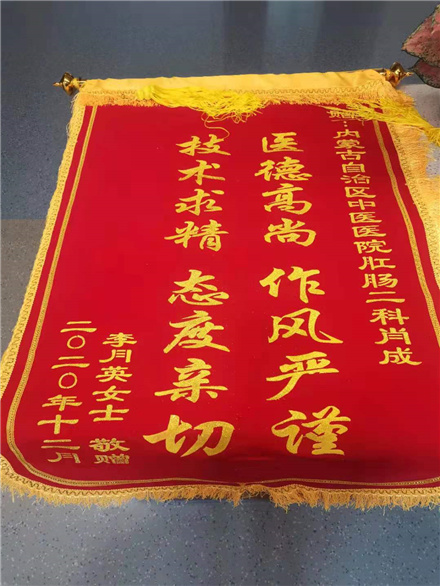 赠：内蒙古自治区中医医院肛肠二科肖成
医德高尚 作风严谨
技术求精 态度亲切
李月英女士 敬赠
二〇二〇年十二月